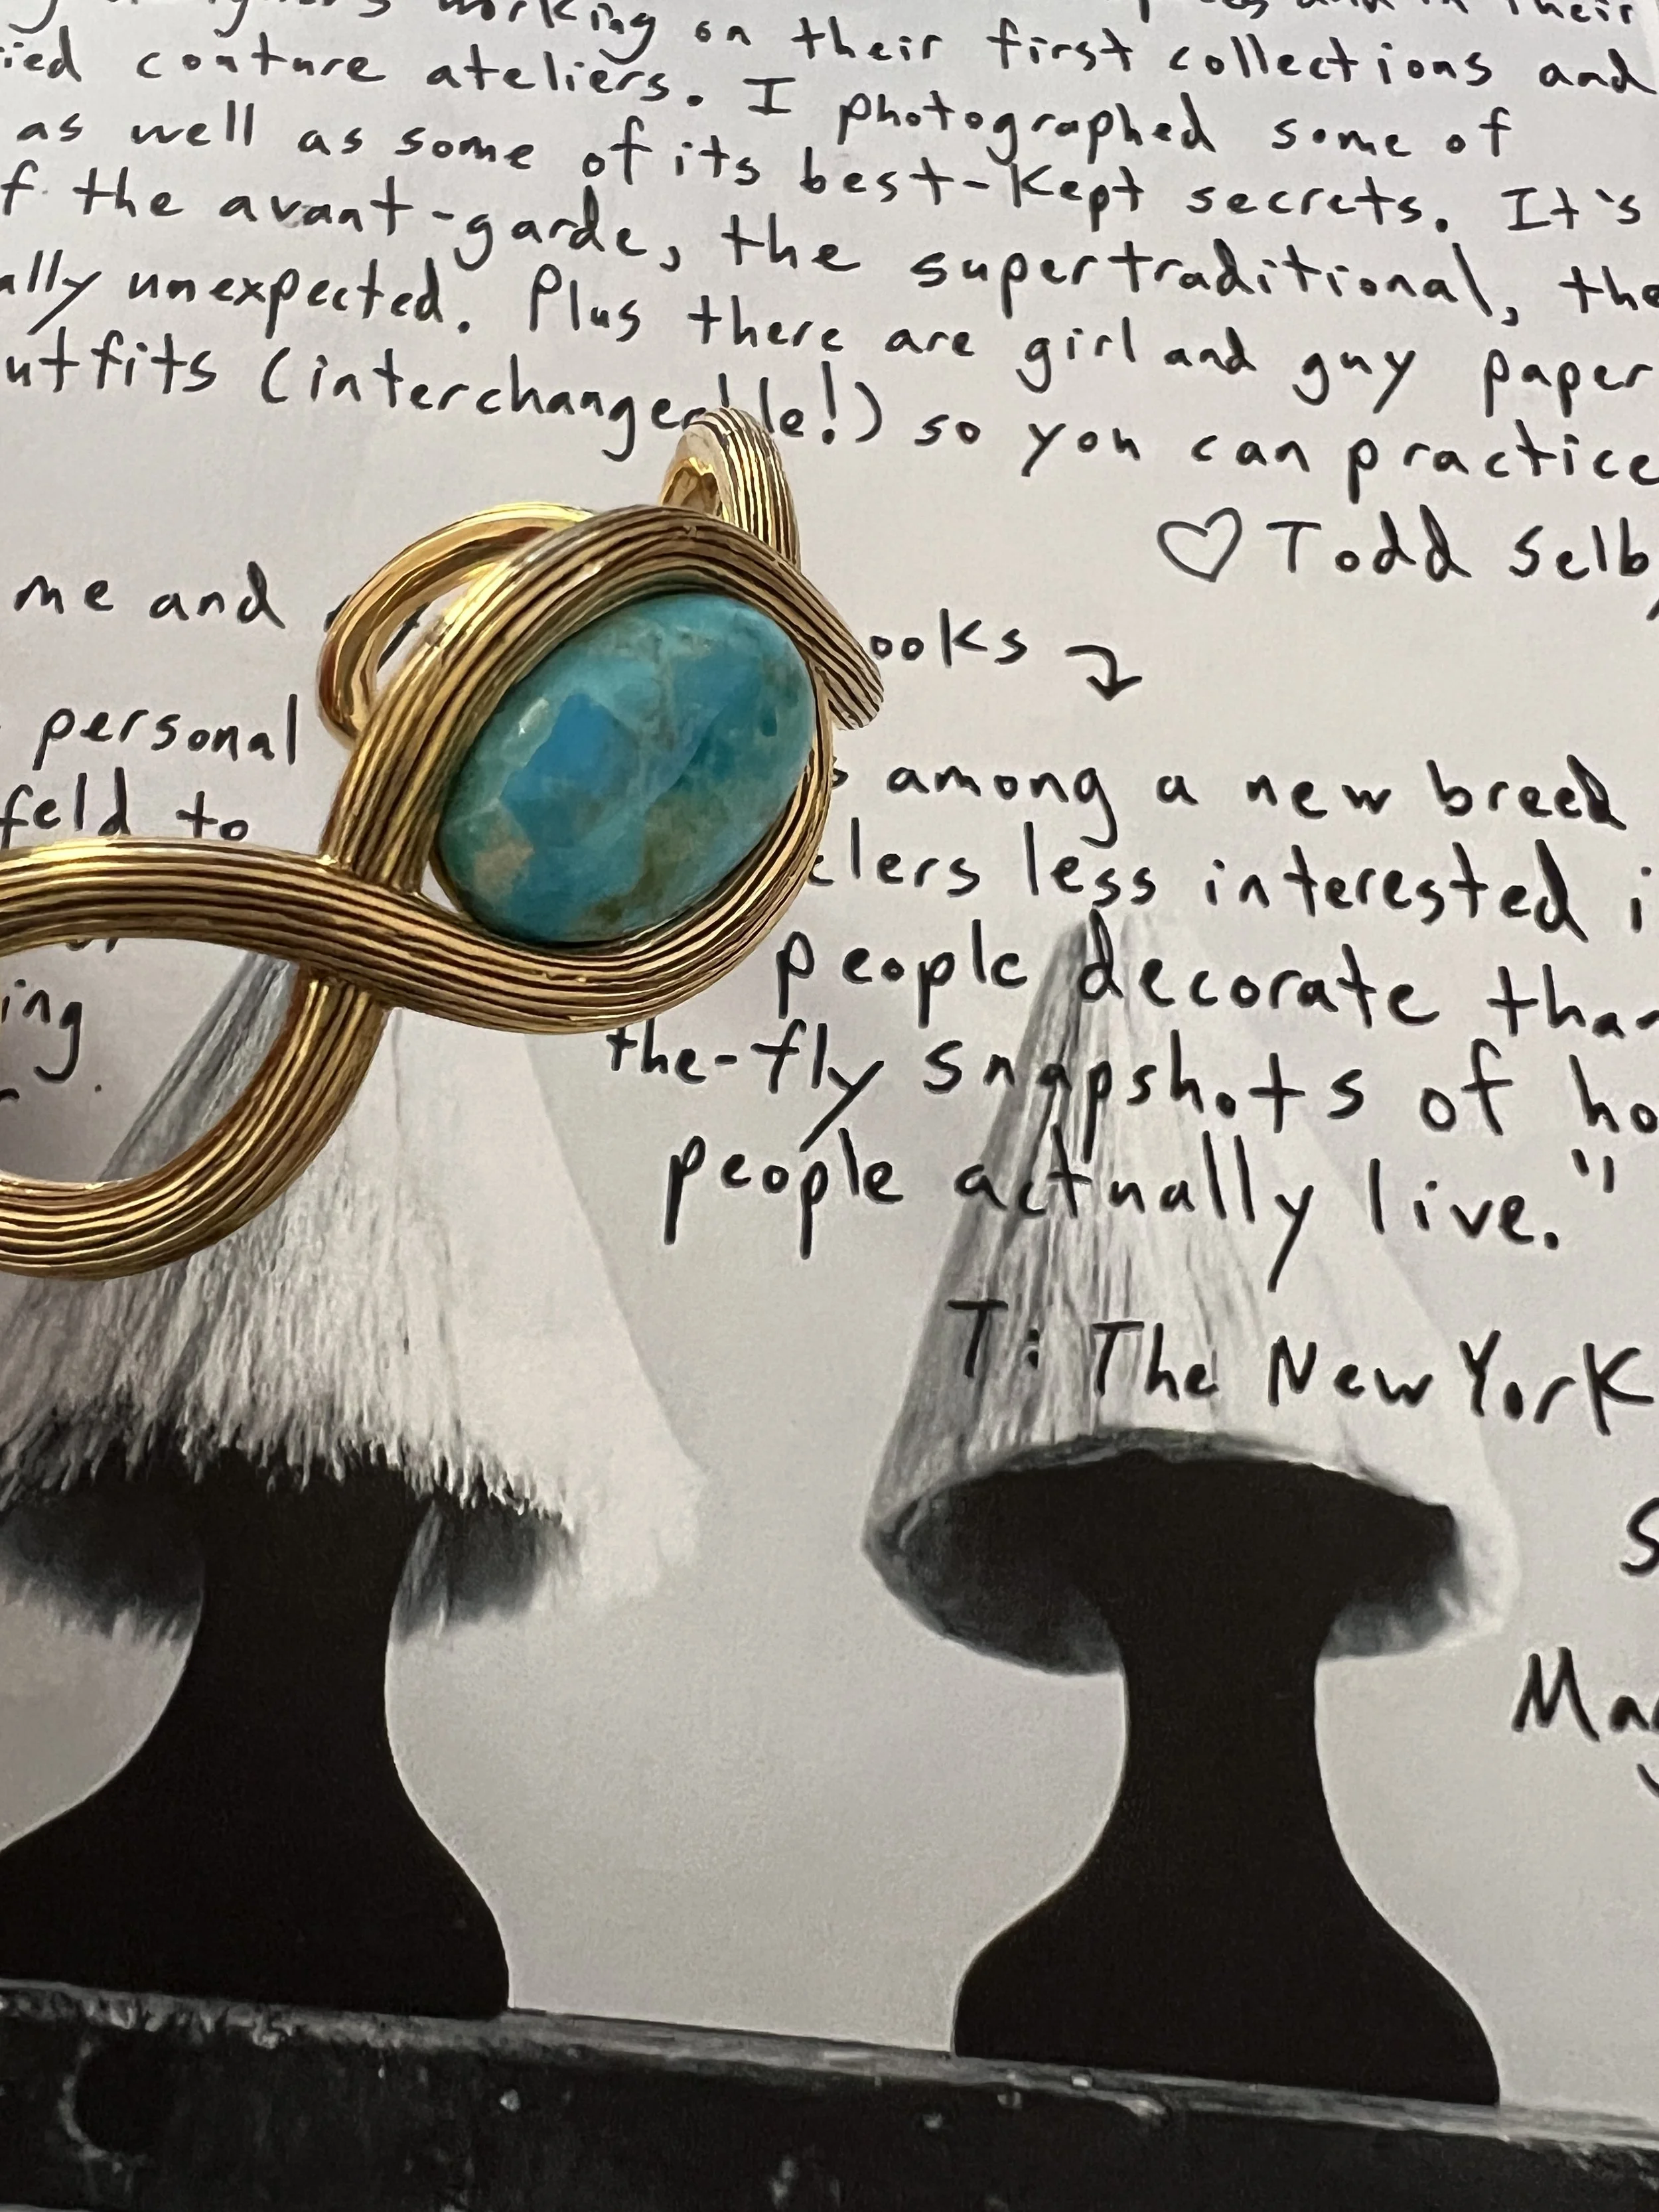 working on their first collections and
couture ateliers. I photographed some of
as well as some of its best-kept secrets. It's
the avant-garde, the supertraditional, the
unexpected. Plus there are girl and guy paper
(interchangeable!) so you can practice
♡ Todd Selby
me and
personal
to
among a new breed
less interested
people decorate
the-fly snapshots of
people actually live."
T: The New York